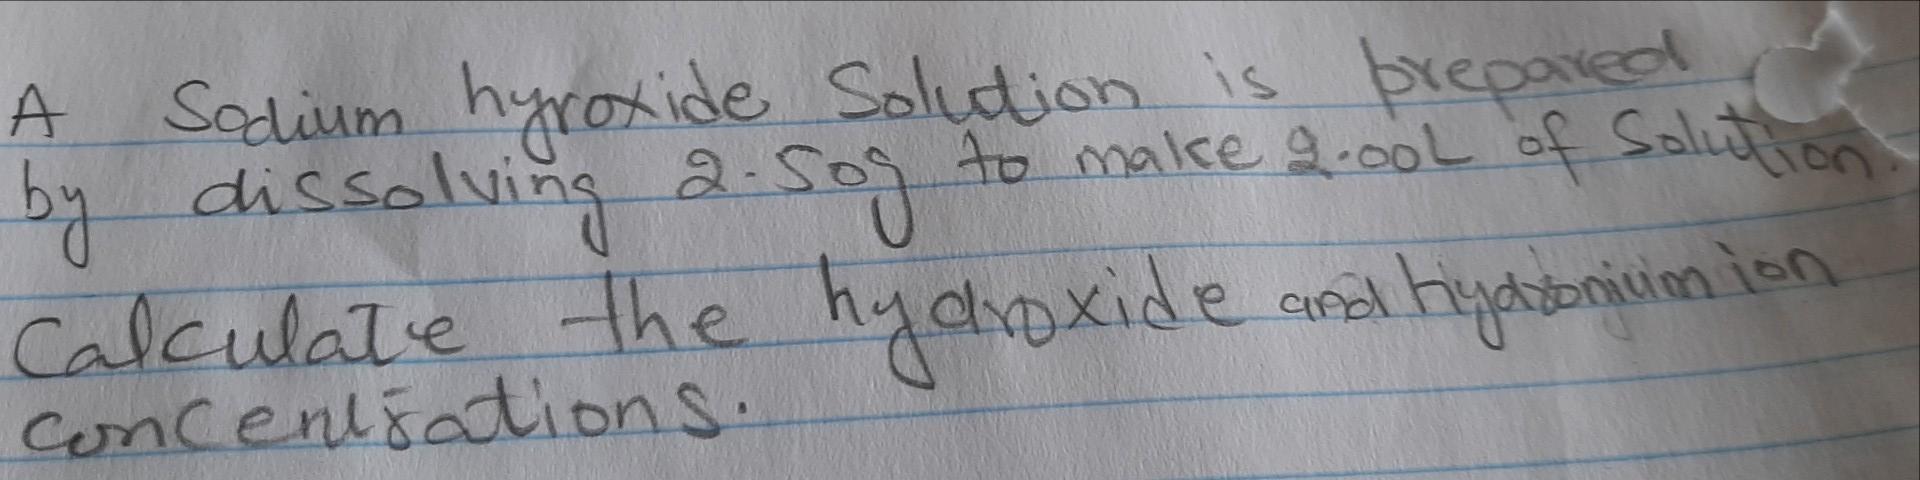 A Sodium hyroxide Solution is prepared
by dissolving 2.50g to make 2.00L of Solution.
Calculate the hydroxide and hydronium ion
concentrations.